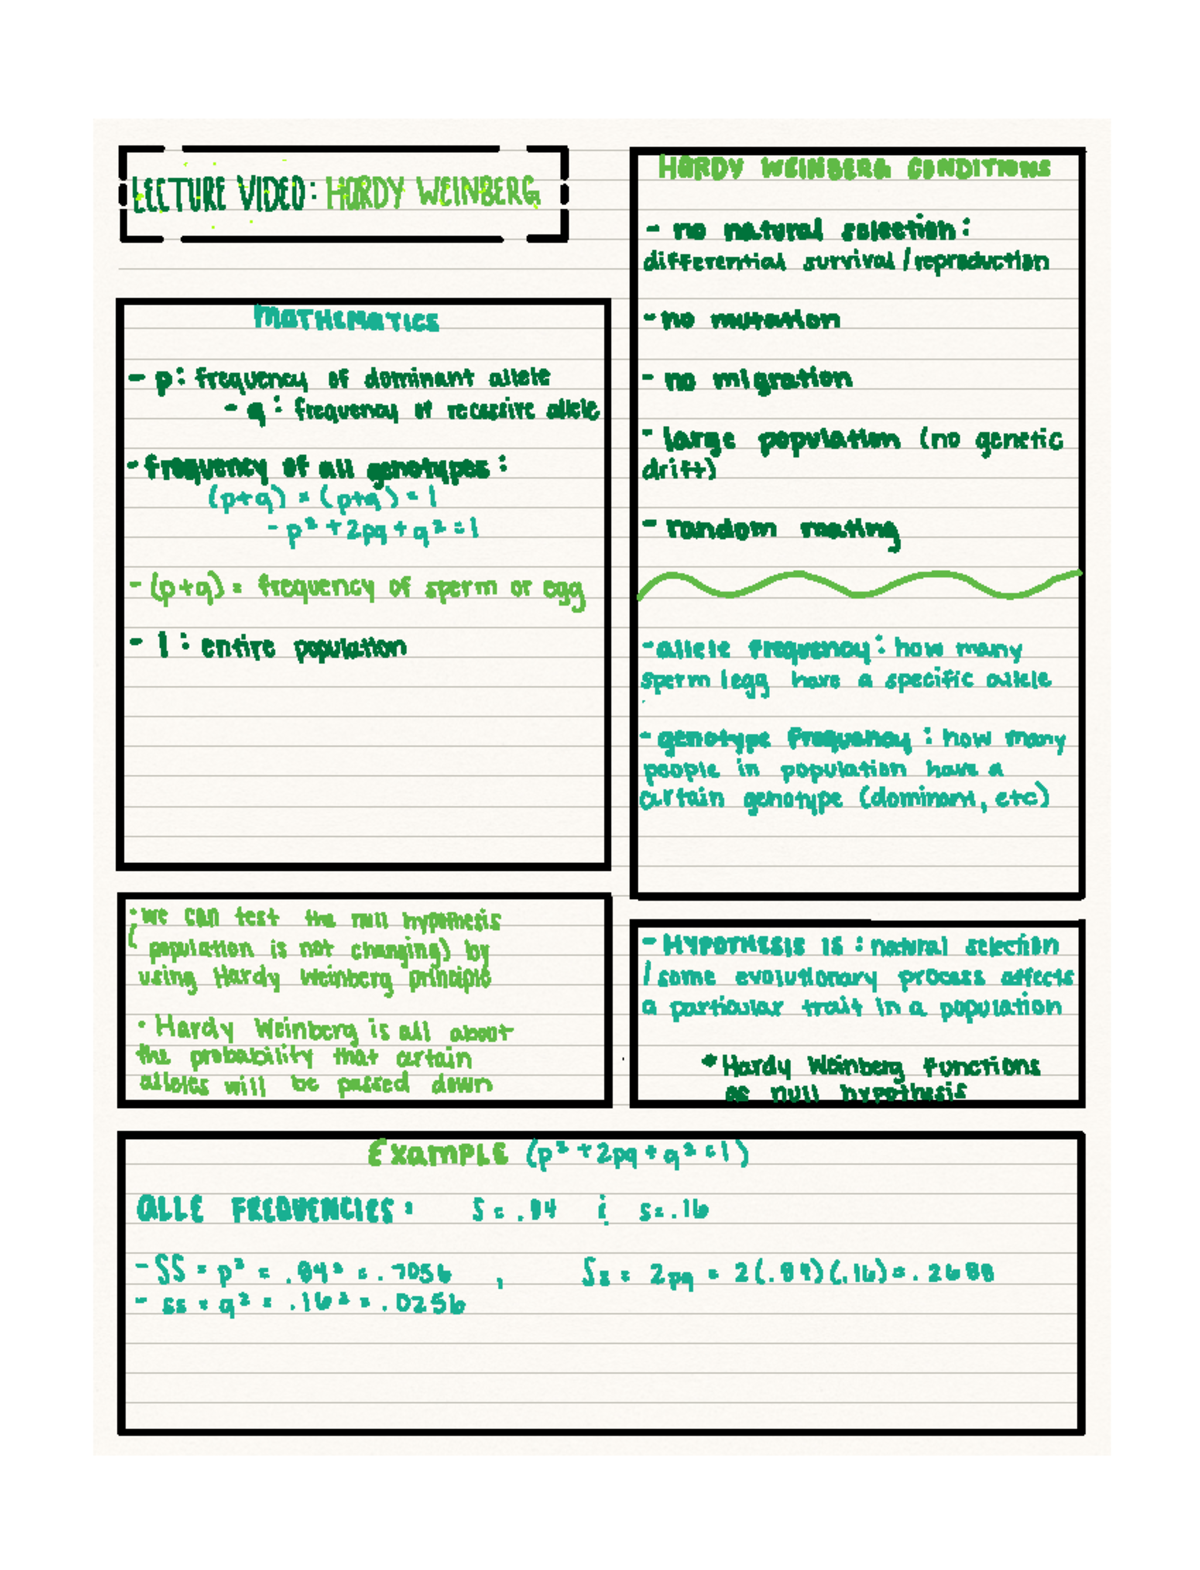 LECTURE VIDEO: HARDY WEINBERG
MATHEMATICS
- p: frequency of dominant allele
- q: frequency of recessive allele
- frequency of all genotypes:
(p+q) × (p+q) = 1
- p² + 2pq + q² = 1
- (p+q) = frequency of sperm or egg
- 1: entire population
HARDY WEINBERG CONDITIONS
- no natural selection:
differential survival/reproduction
- no mutation
- no migration
- large population (no genetic
drift)
- random mating
- allele frequency: how many
sperm/egg have a specific allele
- genotype frequency: how many
people in population have a
certain genotype (dominant, etc)
• we can test the null hypothesis
( population is not changing) by
using Hardy Weinberg principle
• Hardy Weinberg is all about
the probability that certain
alleles will be passed down
- HYPOTHESIS IS: natural selection
/some evolutionary process affects
a particular trait in a population
* Hardy Weinberg functions
as null hypothesis
EXAMPLE (p² + 2pq + q² = 1)
ALLE FREQUENCIES: S = .84 ; s = .16
- SS = p² = .84² = .7056 , Ss = 2pq = 2(.84)(.16) = .2688
- ss = q² = .16² = .0256